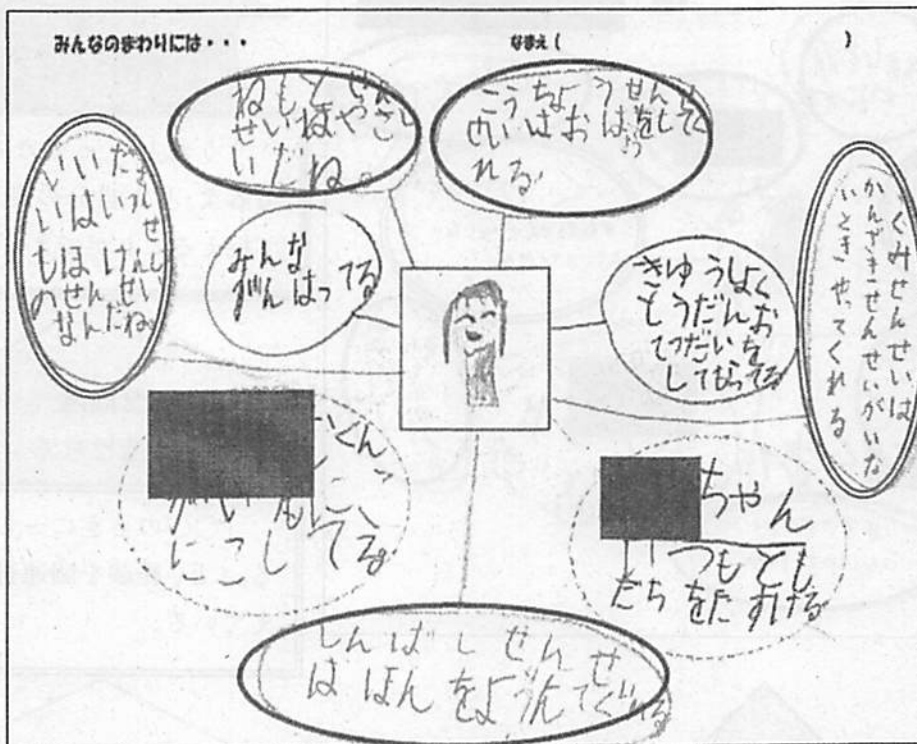 みんなのまわりには・・・
なまえ(　　　)
ねもとせんし
せいはやさ
いだね。
こうちょうせんし
せいはおはようをしてく
れる
いいだせ
いはいつせ
もほけんし
のせんせい
なんだね。
みんな
がんはってる
きゅうしよく
もうだんお
てつだいを
してもらってる
くみせんせいは
かんざきせんせいがいな
いときやってくれる
くん
にこ
にこしてる。
ちゃん
いつもとし
たちをたすける
しんばしせんせ
はほんをよんでくれる